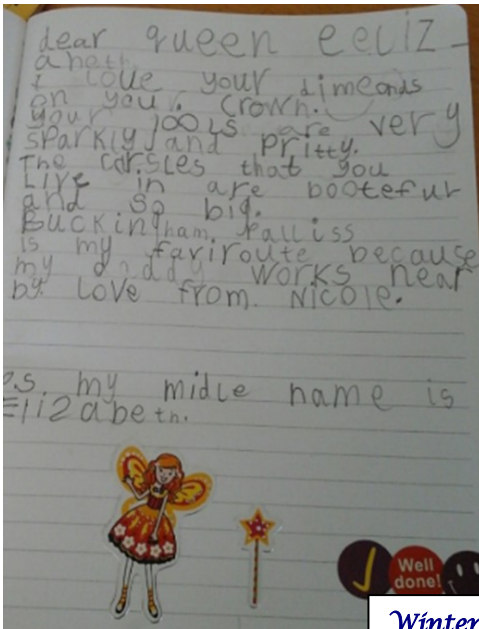 dear queen eeliz-
abeth
I love your dimeonds
on your. crown.
your jools are very
sparkly and pritty.
The carsles that you
Live in are booteful
and so big.
Buckingham palliss
is my fariroute because
my daddy works near
by. Love from. Nicole.
P.S. my midle name is
Elizabeth.
Well
done!
Winter